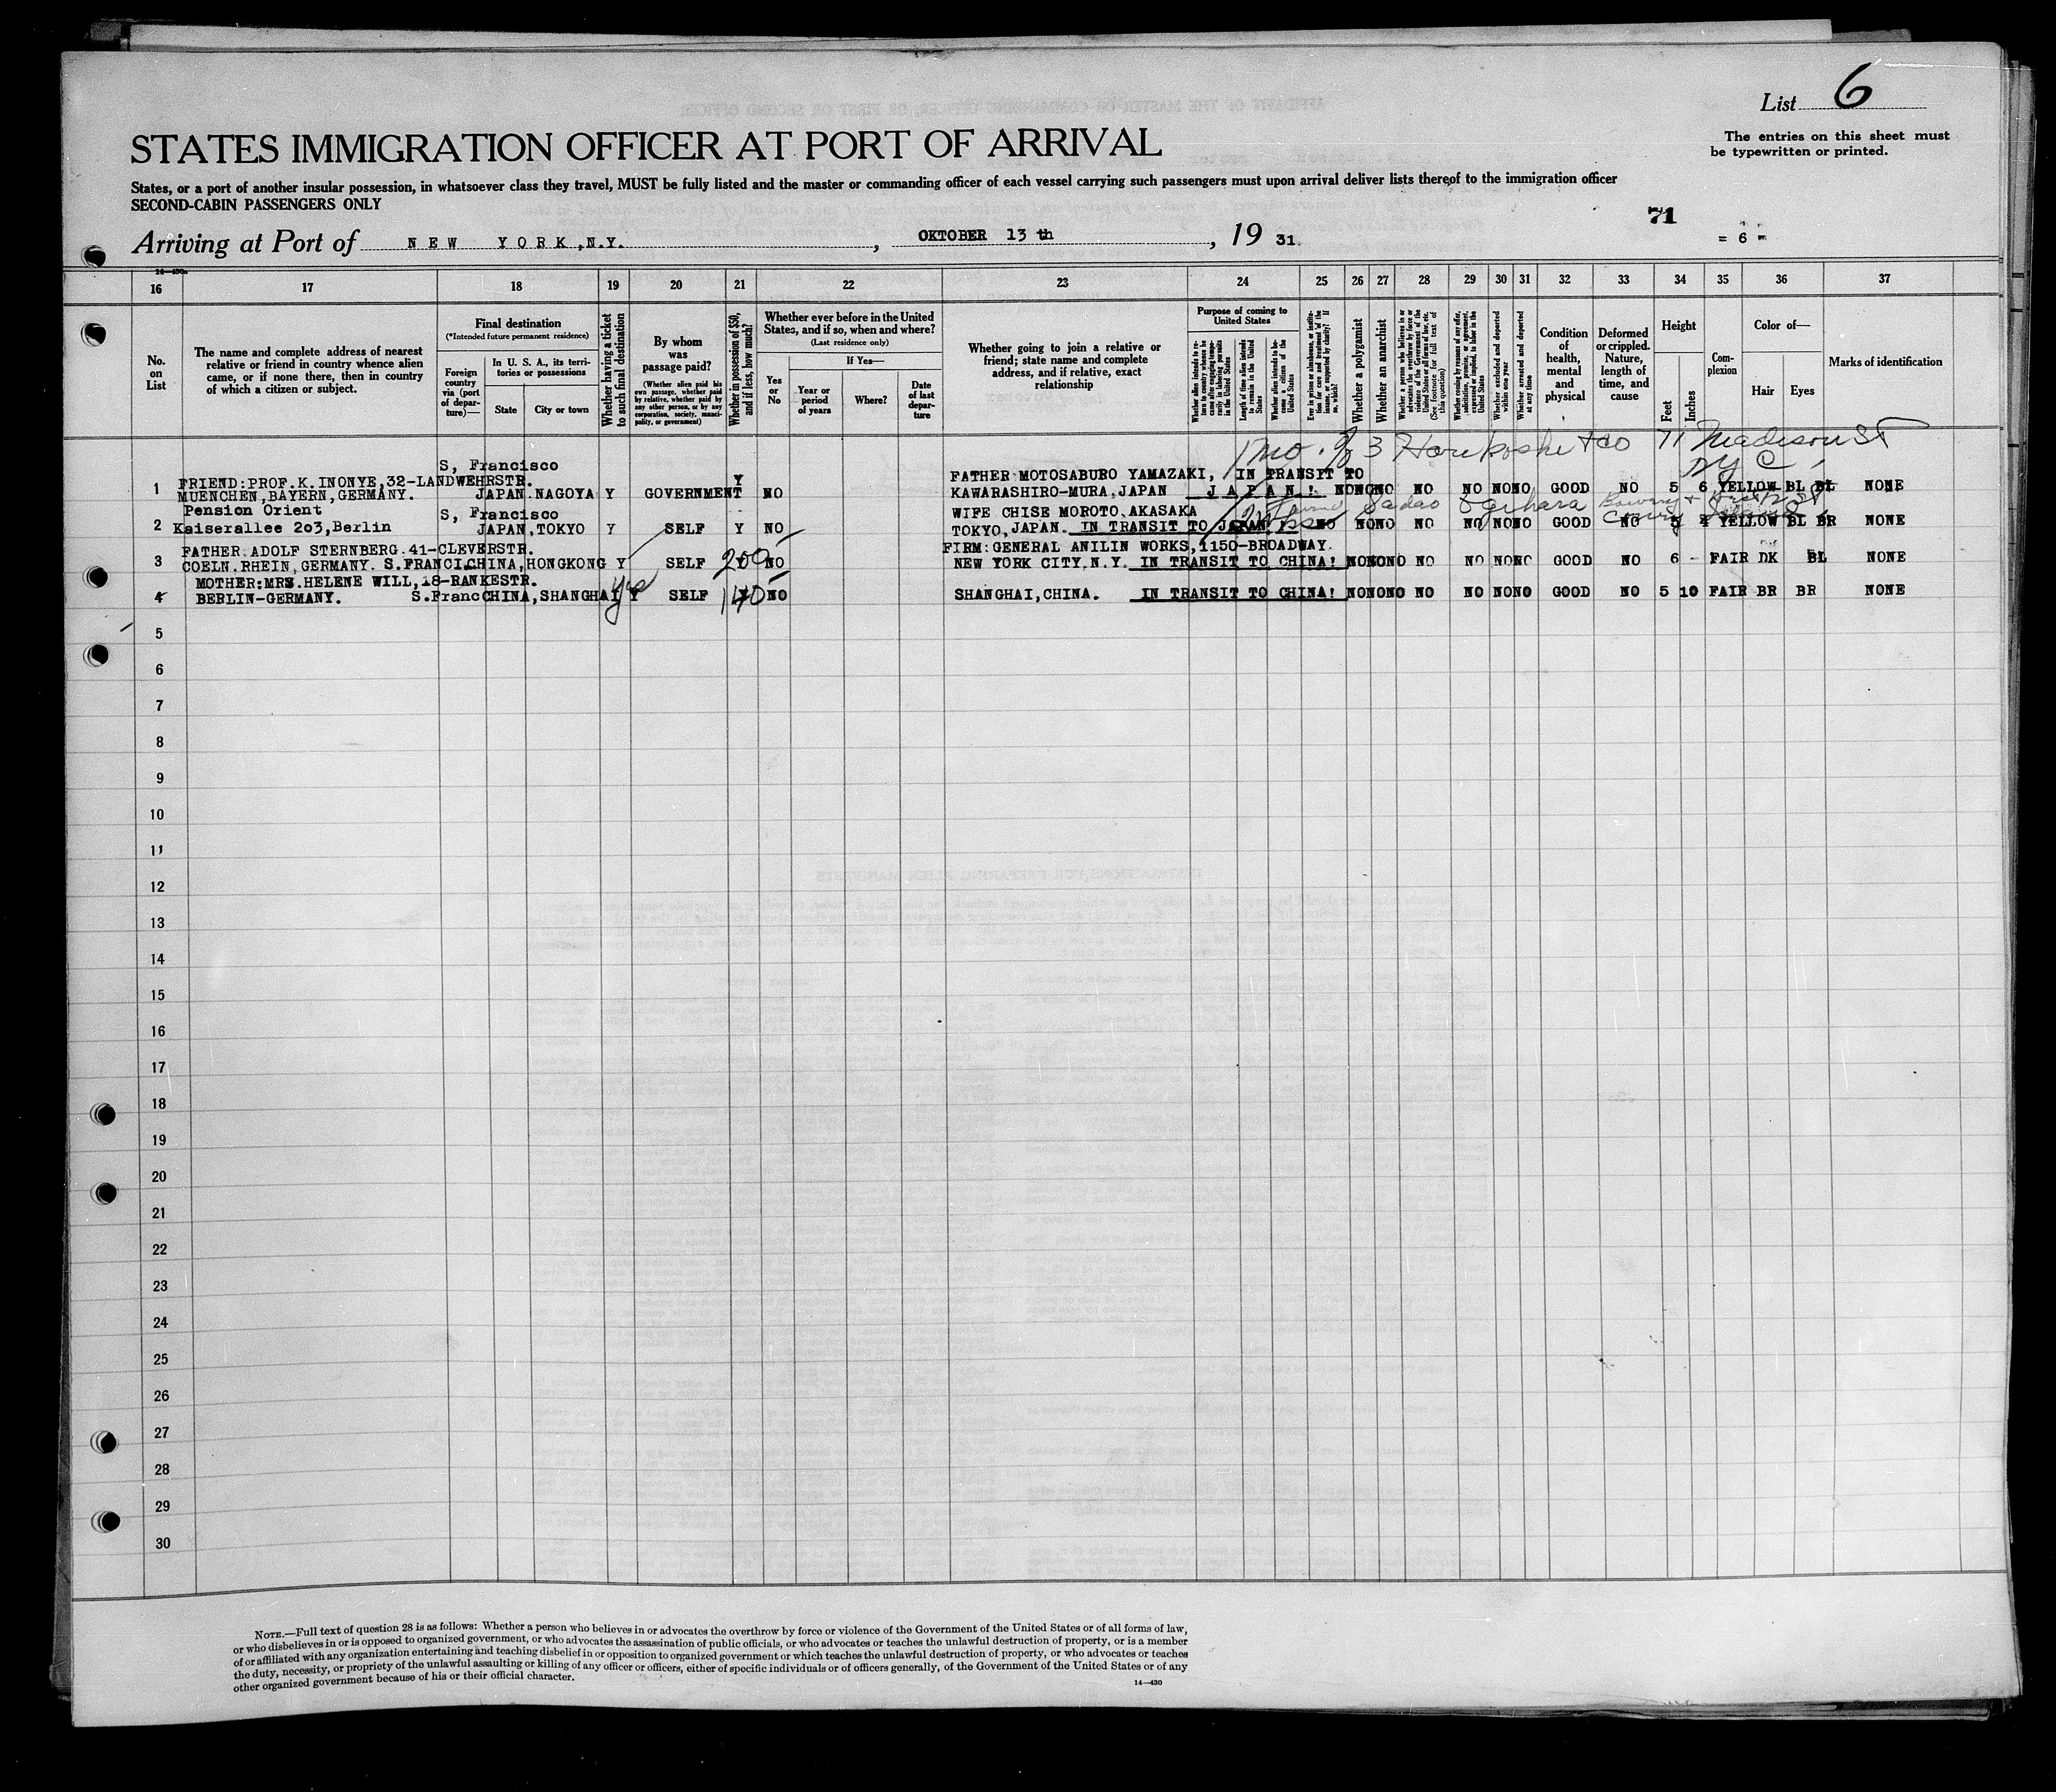 List 6
STATES IMMIGRATION OFFICER AT PORT OF ARRIVAL
The entries on this sheet must
be typewritten or printed.
States, or a port of another insular possession, in whatsoever class they travel, MUST be fully listed and the master or commanding officer of each vessel carrying such passengers must upon arrival deliver lists thereof to the immigration officer
SECOND-CABIN PASSENGERS ONLY
71
Arriving at Port of NEW YORK, N.Y. , OKTOBER 13 th , 19 31.
= 6 =
16 17 18 19 20 21 22 23 24 25 26 27 28 29 30 31 32 33 34 35 36 37
No. on List
The name and complete address of nearest relative or friend in country whence alien came, or if none there, then in country of which a citizen or subject.
Final destination
(*Intended future permanent residence)
Foreign country via (port of departure)—
In U. S. A., its territories or possessions
State
City or town
Whether having a ticket to such final destination
By whom was passage paid?
(Whether alien paid his own passage, whether paid by relative, whether paid by any other person, or by any corporation, society, municipality, or government)
Whether in possession of $50, and if less, how much?
Whether ever before in the United States, and if so, when and where?
(Last residence only)
Yes or No
If Yes—
Year or period of years
Where?
Date of last departure
Whether going to join a relative or friend; state name and complete address, and if relative, exact relationship
Purpose of coming to United States
Length of time alien intends to remain in the United States
Whether alien intends to become a citizen of the United States
Whether a polygamist
Whether an anarchist
(See footnote for full text of this question)
Whether excluded and deported within one year
Whether arrested and deported at any time
Condition of health, mental and physical
Deformed or crippled. Nature, length of time, and cause
Height
Feet
Inches
Complexion
Color of—
Hair
Eyes
Marks of identification
1 mo. 71 Madison St
N Y C
S, Francisco
1 FRIEND:PROF.K.INONYE,32-LANDWEHRSTR. Y FATHER MOTOSABURO YAMAZAKI, IN TRANSIT TO
MUENCHEN,BAYERN,GERMANY. JAPAN.NAGOYA Y GOVERNMENT NO KAWARASHIRO-MURA.JAPAN JAPAN! NO NO NO NO NO NO NO GOOD NO 5 6 YELLOW BL BL NONE
Pension Orient S, Francisco WIFE CHISE MOROTO.AKASAKA Sadao
2 Kaiserallee 203,Berlin JAPAN,TOKYO Y SELF Y NO TOKYO,JAPAN. IN TRANSIT TO JAPAN! NO NO NO NO NO NO NO GOOD NO 5 4 YELLOW BL BR NONE
FATHER ADOLF STERNBERG.41-CLEVERSTR. FIRM:GENERAL ANILIN WORKS,1150-BROADWAY.
3 COELN.RHEIN,GERMANY. S.FRANCI.CHINA,HONGKONG Y SELF 200 Y NO NEW YORK CITY.N.Y. IN TRANSIT TO CHINA! NO NO NO NO NO NO NO GOOD NO 6 - FAIR DK BL NONE
MOTHER:MRS.HELENE WILL,18-RANKESTR. yes
4 BERLIN-GERMANY. S.Franc CHINA,SHANGHAI Y SELF 140 NO SHANGHAI,CHINA. IN TRANSIT TO CHINA! NO NO NO NO NO NO NO GOOD NO 5 10 FAIR BR BR NONE
5
6
7
8
9
10
11
12
13
14
15
16
17
18
19
20
21
22
23
24
25
26
27
28
29
30
NOTE.—Full text of question 28 is as follows: Whether a person who believes in or advocates the overthrow by force or violence of the Government of the United States or of all forms of law,
or who disbelieves in or is opposed to organized government, or who advocates the assassination of public officials, or who advocates or teaches the unlawful destruction of property, or is a member
of or affiliated with any organization entertaining and teaching disbelief in or opposition to organized government or which teaches the unlawful destruction of property, or who advocates or teaches
the duty, necessity, or propriety of the unlawful assaulting or killing of any officer or officers, either of specific individuals or of officers generally, of the Government of the United States or of any
other organized government because of his or their official character.
14—430